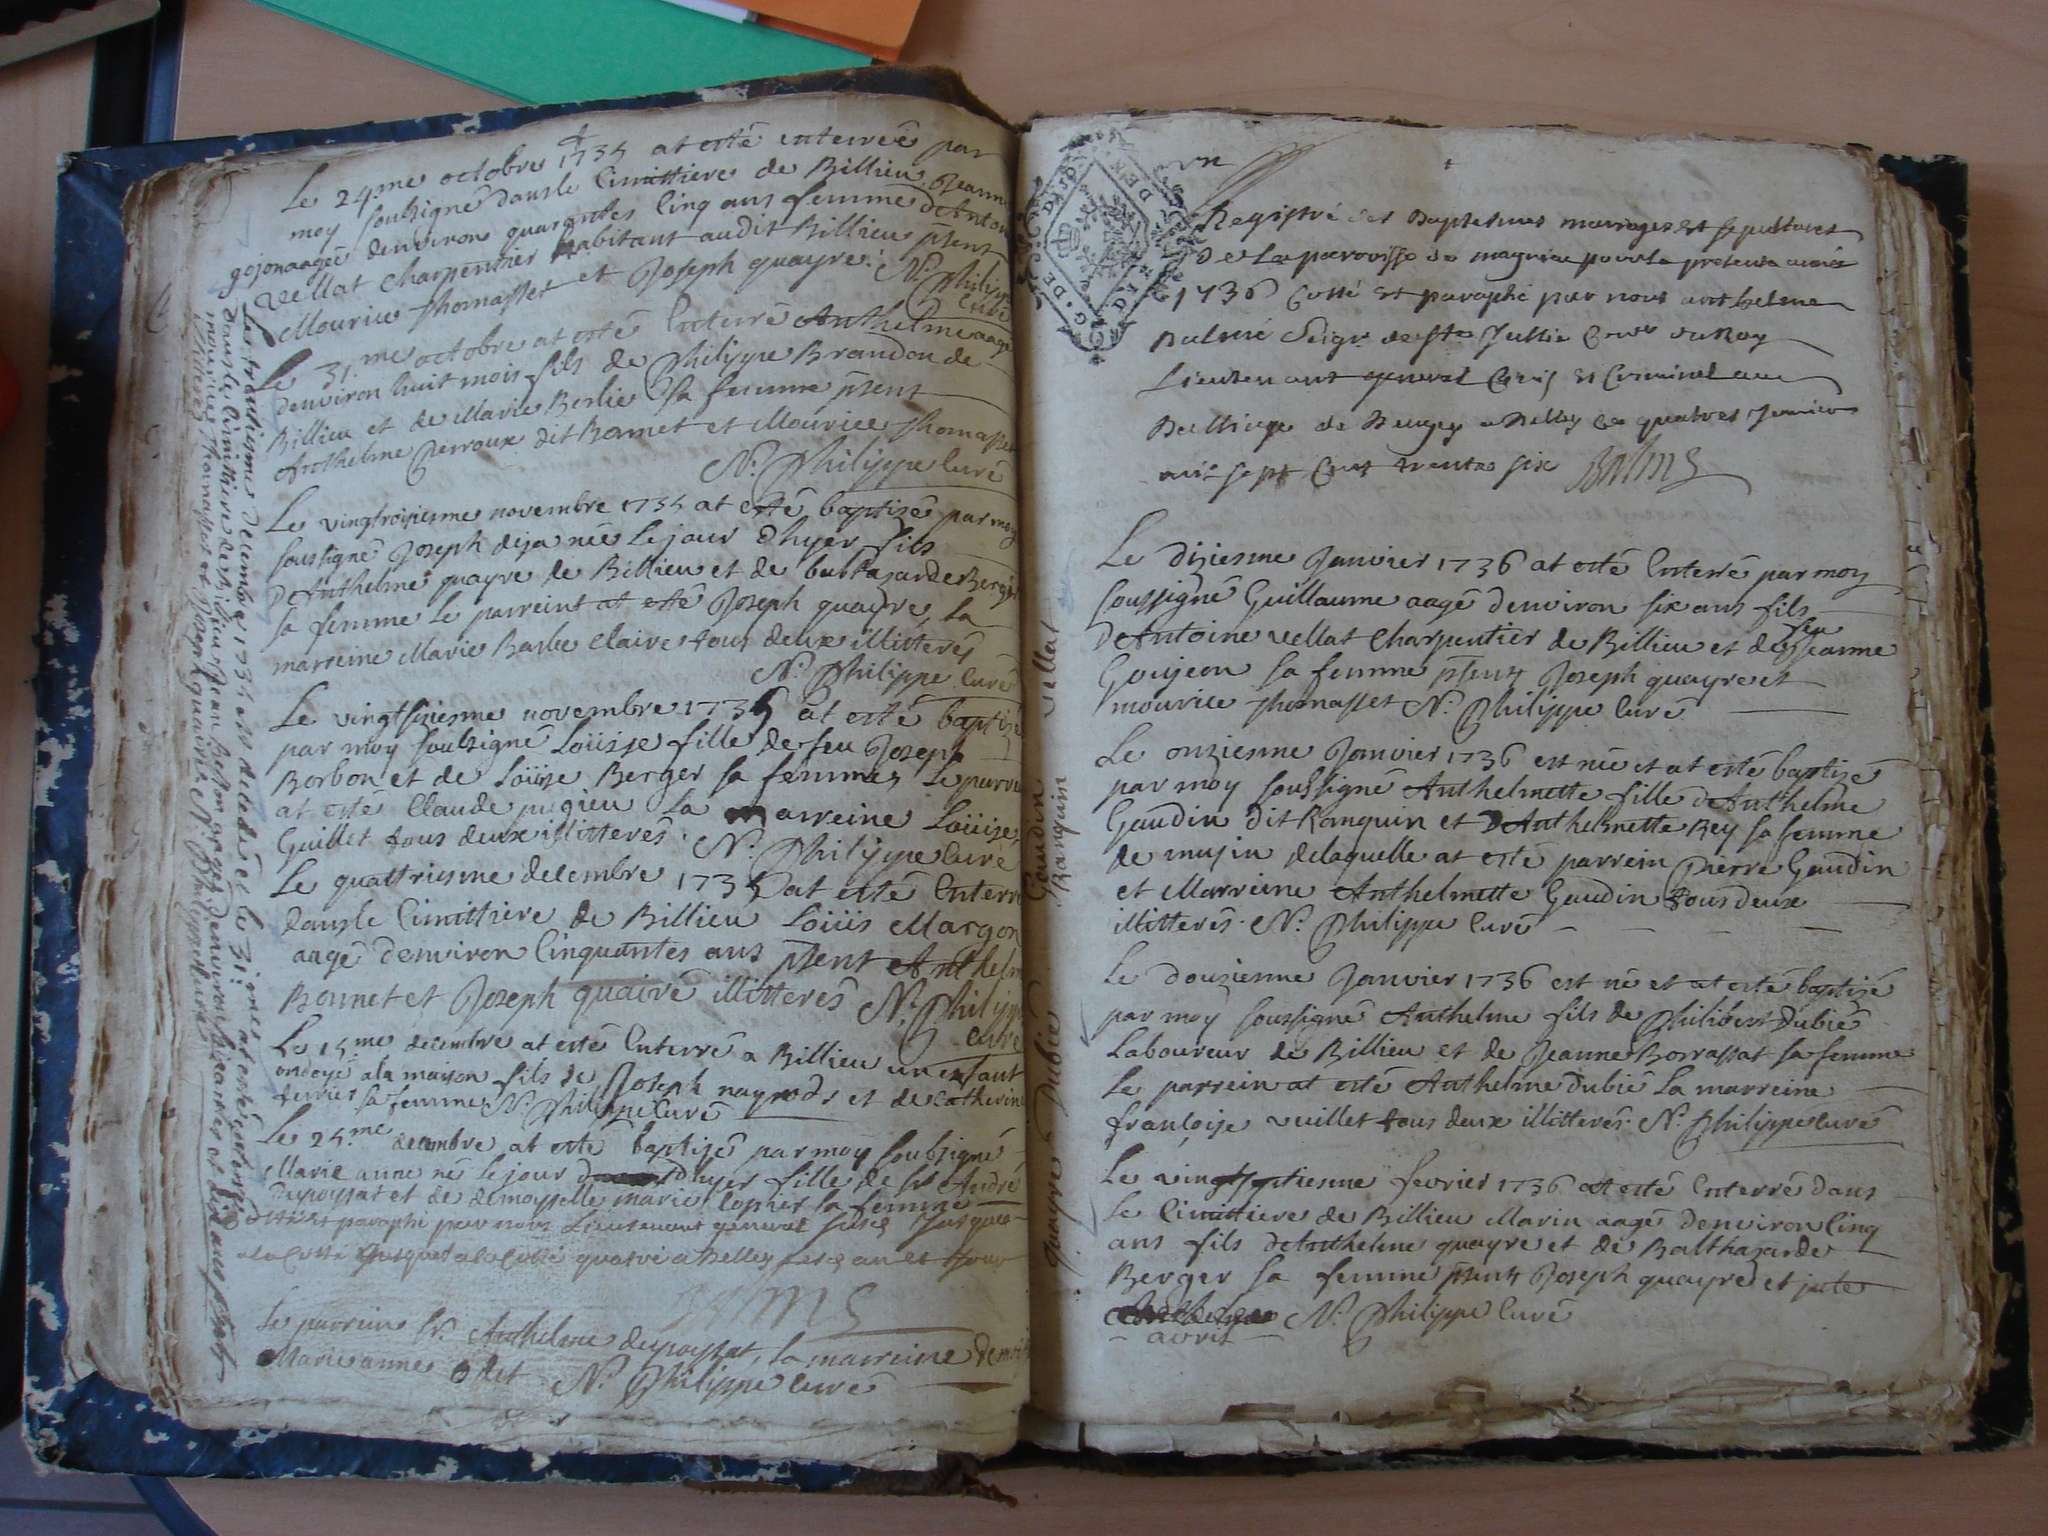 Le 24.me octobre 1735 at esté enterreé par
moy soubsigné dans le Cimittiere de Billieu Jeanne
gojon aagée denviron quarantes Cinq ans femme dAntoi
vellat Charpentier habitant audit Billieu pnt
Mourice Thomasset et Joseph quayre. N. Philippe
Curé
Le 31.me octobre at esté Enterré Anthelme aagé
denviron huit mois fils de Philippe Brandon de
Billieu et de Marie Berlie sa femme pnt
Anthelme Perroux dit Bonnet et Mourice Thomasset
N. Philippe Curé
Le vingtroisiesme novembre 1735 at esté baptisé par moy
soussigné Joseph deja née le jour dhyer fils
DAnthelme quayre de Billieu et de baltazarde Berger
sa femme le parreint at esté Joseph quayre, la
marreine Marie Barbe Claire tous deux illitterés
N. Philippe Curé
Le vingtsixiesme novembre 1735 at esté baptizé
par moy soubsigné Loüise fille de feu Joseph
Borbon et de Loüise Berger sa femmes le parre
at esté Claude pugieu la marreine Loüise
Guillet tous deux illitterés. N. Philippe Curé
Le quattriesme decembre 1735 at esté Enterré
dans le Cimittiere de Billieu Loüis Margon
aagé denviron Cinquantes ans pnt Anthelm
Bonnet et Joseph quaire illitterés N. Philippe
Curé
Le 15.me decembre at esté Enterré a Billieu un enfant
ondoyé a la mayson fils de Joseph nayrods et de Catherine
ferrier sa femme N. Philippe Curé
Le 25.me decembre at esté baptizé par moy soubsigné
Marie anne né le jour dhyer fille de Sr André
Depoyssat et de demoyselle marie sa femme
et paraphé par nous Lieutenant general
jusques a la Cotte quatre a Belley
Le parrein Sr. Anthelme depoyssat, la marreine demois
Marie anne Odet N. Philippe Curé
Le traisiesme decembre 1735 est decedé et le 31.me at esté enterré
dans le Cimittiere de Billieu Jean
mourice Thomasset et Joseph quayre N. Philippe Curé
Registre des Baptesmes mariages et sepultures
De La parroisse de magnieu pour la presente année
1736 Cotté et paraphé par nous anthelme
Balme Seigr de Ste Jullie Coner du Roy
Lieutenant general Civil et Criminel au
Balliage de Beugey a Belley le quatres Janvier
mil sept Cent trente six Balme
Le dixiesme Janvier 1736 at esté Enterré par moy
soussigné Guillaume aagé denviron six ans fils
dAntoine vellat Charpentier de Billieu et de feu Jeanne
Goujeon sa femme pnts Joseph quayre et
mourice Thomasset N. Philippe Curé
Le onziesme Janvier 1736 est née et at esté baptizé
par moy soussigné Anthelmette fille dAnthelme
Gaudin dit Ranquin et DAnthelmette Rey sa femme
de musin delaquelle at esté parrein Pierre Gaudin
et Marreine Anthelmette Gaudin tous deux
illitterés. N. Philippe Curé
Le douziemne Janvier 1736 est né et at esté baptizé
par moy soussigné Anthelme fils de Philibert Dubié
Laboureur de Billieu et de Jeanne Borrassat sa femme
Le parrein at esté Anthelme Dubié La marreine
françoise vuillet tous deux illitterés. N. Philippe Curé
Le vingtseptiesme fevrier 1736 at esté Enterré dans
Le Cimittiere de Billieu Marin aagé denviron Cinq
ans fils deAnthelme quayre et de Balthazarde
Berger sa femme pnts Joseph quayre et
N. Philippe Curé
- avril -
vellat
Gaudin
Ranquin
Dubié
quayre